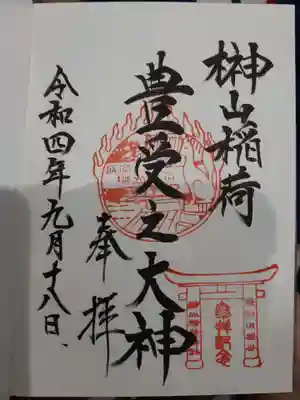 榊山稲荷
豊受之大神
奉拝
令和四年九月十八日